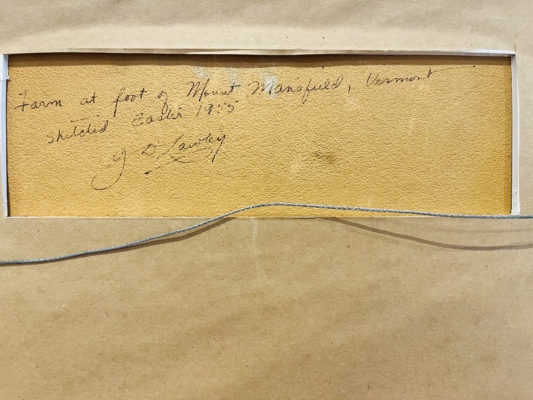 Farm at foot of Mount Mansfield, Vermont
Sketched Easter
J D Lawley